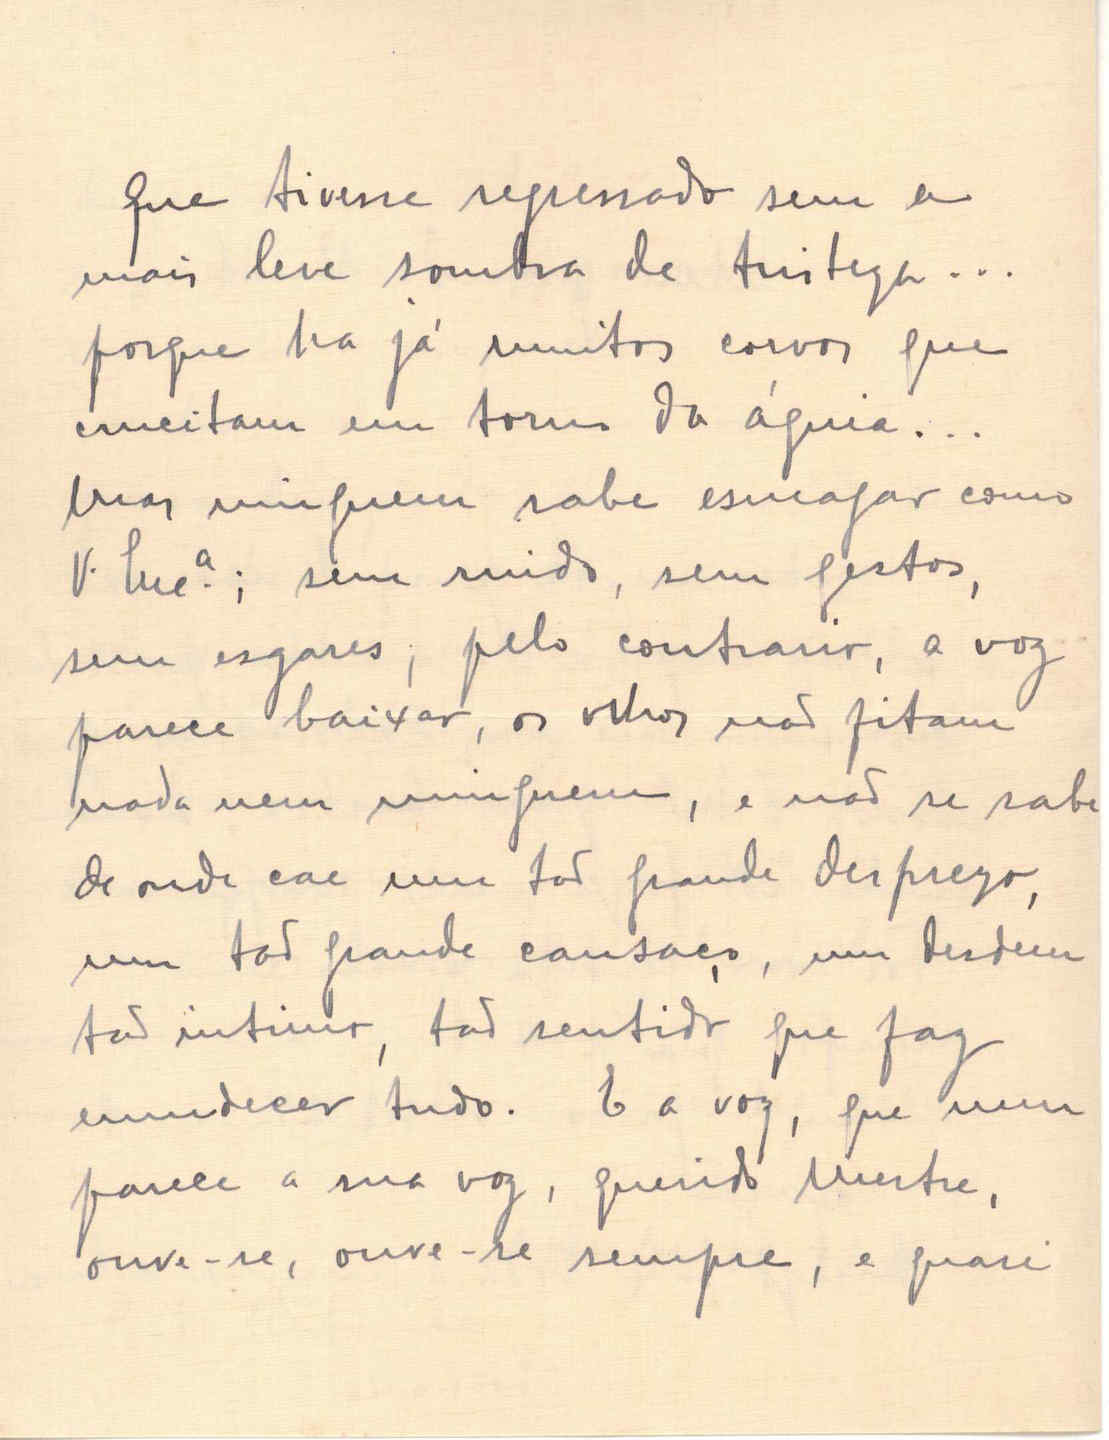 que tivesse regressado sem a
mais leve sombra de tristeza...
porque ha já muitos corvos que
crucitam em torno da águia...
Mas ninguem sabe esmagar como
V. Mcê.ª; sem ruido, sem gestos,
sem esgares; pelo contrario, a voz
parece baixar, os olhos não fitam
nada nem ninguem, e não se sabe
de onde cae um tão grande desprezo,
um tão grande cansaço, um desdem
tão intimo, tão sentido que faz
emudecer tudo. E a voz, que nem
parece a sua voz, querido Mestre,
ouve-se, ouve-se sempre, e quasi